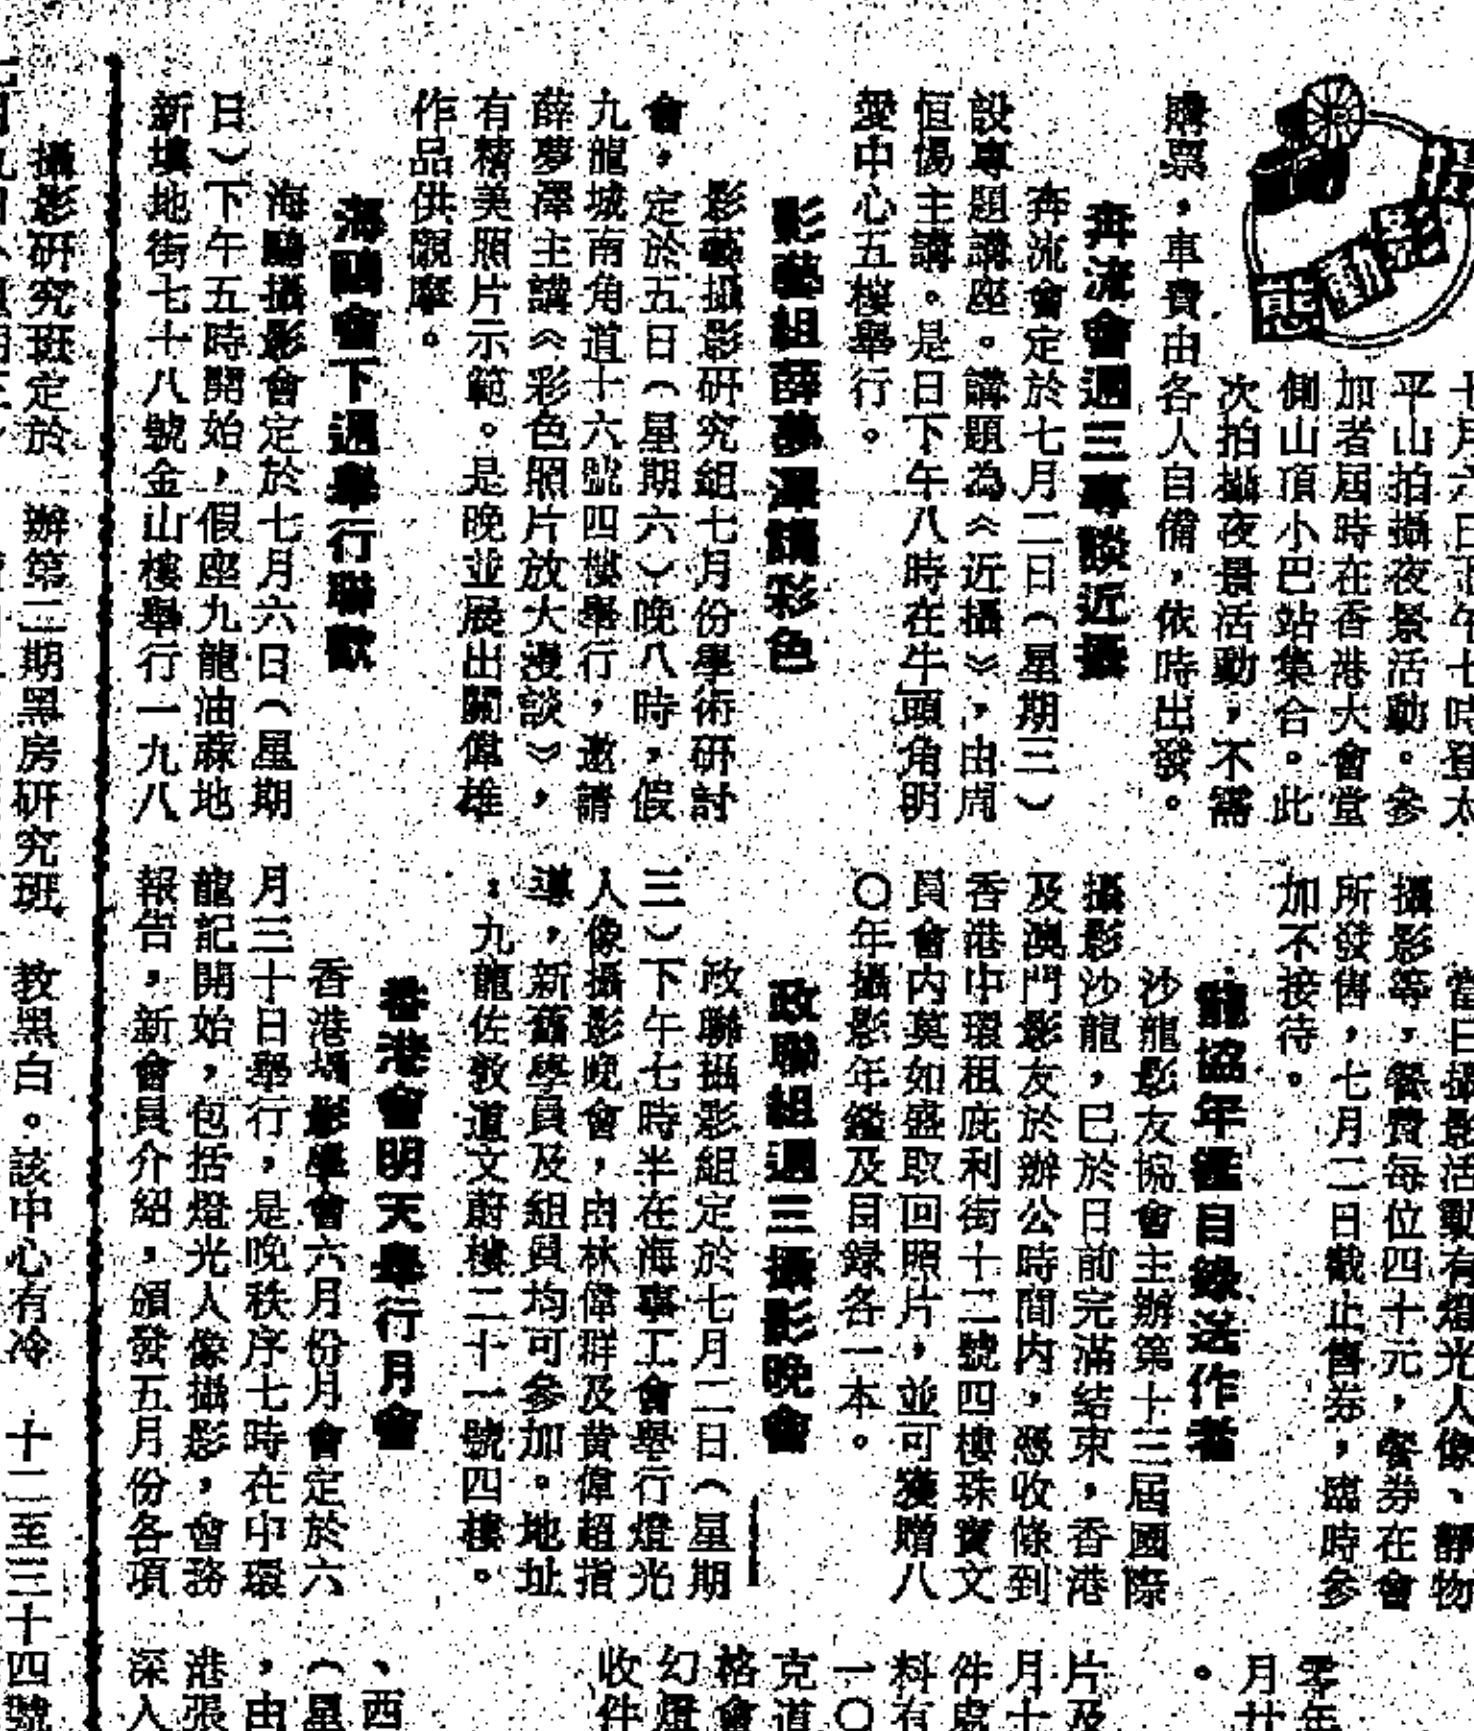 攝影動態
十月六日下午七時登太
平山拍攝夜景活動。參
加者屆時在香港大會堂
側山頂小巴站集合。此
次拍攝夜景活動，不需
購票，車費由各人自備，依時出發。
奔流會週三專談近攝
奔流會定於七月二日（星期三）
設專題講座。講題為《近攝》，由周
恒惕主講。是日下午八時在牛頭角明
愛中心五樓舉行。
影藝組薛夢澤講彩色
影藝攝影研究組七月份學術研討
會，定於五日（星期六）晚八時，假
九龍城南角道十六號四樓舉行，邀請
薛夢澤主講《彩色照片放大漫談》，
有精美照片示範。是晚並展出關偉雄
作品供觀摩。
海鷗會下週舉行聯歡
海鷗攝影會定於七月六日（星期
日）下午五時開始，假座九龍油蔴地
新填地街七十八號金山樓舉行一九八
當日攝影活動有燈光人像、靜物
攝影等，餐費每位四十元，餐券在會
所發售，七月二日截止售券，臨時參
加不接待。
龍協年鑑目錄送作者
沙龍影友協會主辦第十三屆國際
攝影沙龍，已於日前完滿結束，香港
及澳門影友於辦公時間内，憑收條到
香港中環租庇利街十二號四樓珠寶文
員會内莫如盛取回照片，並可獲贈八
〇年攝影年鑑及目録各一本。
政聯組週三攝影晚會
政聯攝影組定於七月二日（星期
三）下午七時半在海事工會舉行燈光
人像攝影晚會，由林偉群及黄偉超指
導，新舊學員及組員均可參加。地址
：九龍佐敦道文蔚樓二十一號四樓。
香港會明天舉行月會
香港攝影學會六月份月會定於六
月三十日舉行，是晚秩序七時在中環
龍記開始，包括燈光人像攝影，會務
報告，新會員介紹，頒發五月份各項
零年
月廿
。
片及
月十
件處
料有
一〇
克道
格會
幻燈
收件
、西
（星
，由
港張
深入
攝影研究班定於 辦第二期黑房研究班 教黑白。該中心有冷 十二至三十四號